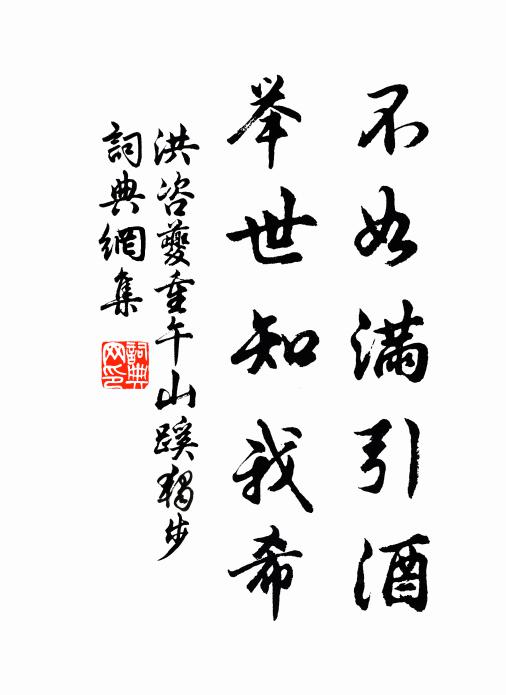 不如满引酒
举世知我希
洪咨夔重午山蹊獨步
詞典網集
詞典网印